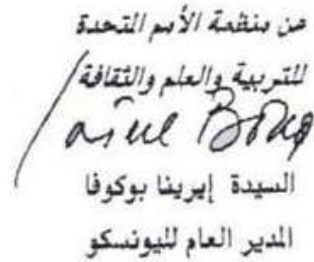 عن منظمة الأمم المتحدة
للتربية والعلم والثقافة
السيدة إيرينا بوكوفا
المدير العام لليونسكو